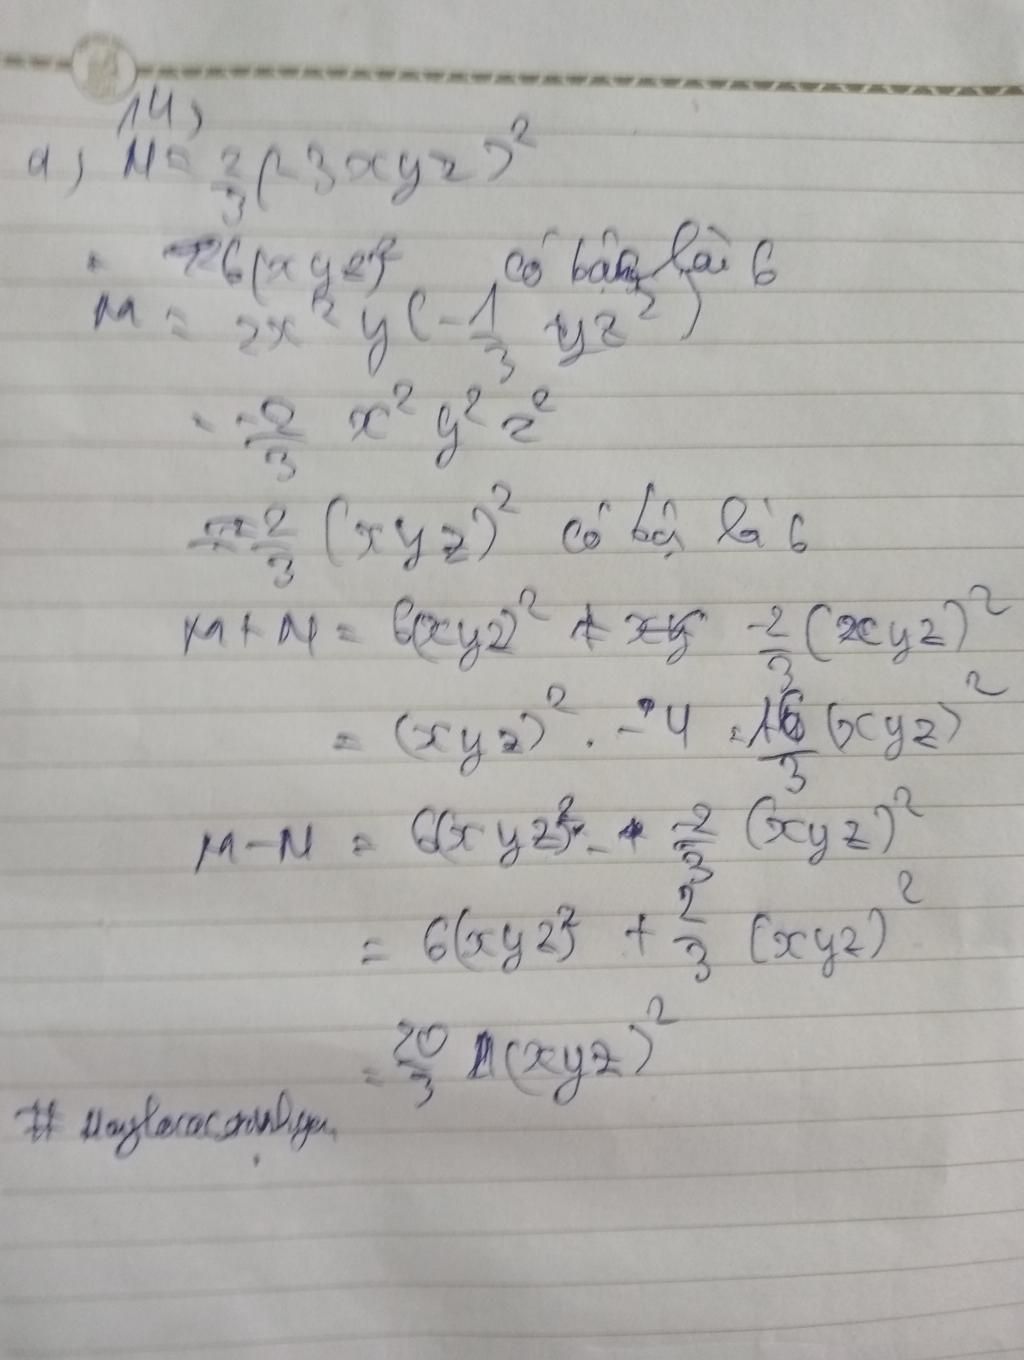 14,
a, N = 2/3 (-3xyz)²
= 6(xyz)² có bậc là 6
M = 2x²y(-1/3 yz²)
= -2/3 x² y² z²
= -2/3 (xyz)² có bậ là 6
M + N = 6(xyz)² + -2/3 (xyz)²
= (xyz)² . - 4 = 16/3 (xyz)²
M - N = 6(xyz)² - -2/3 (xyz)²
= 6(xyz)² + 2/3 (xyz)²
= 20/3 (xyz)²
#